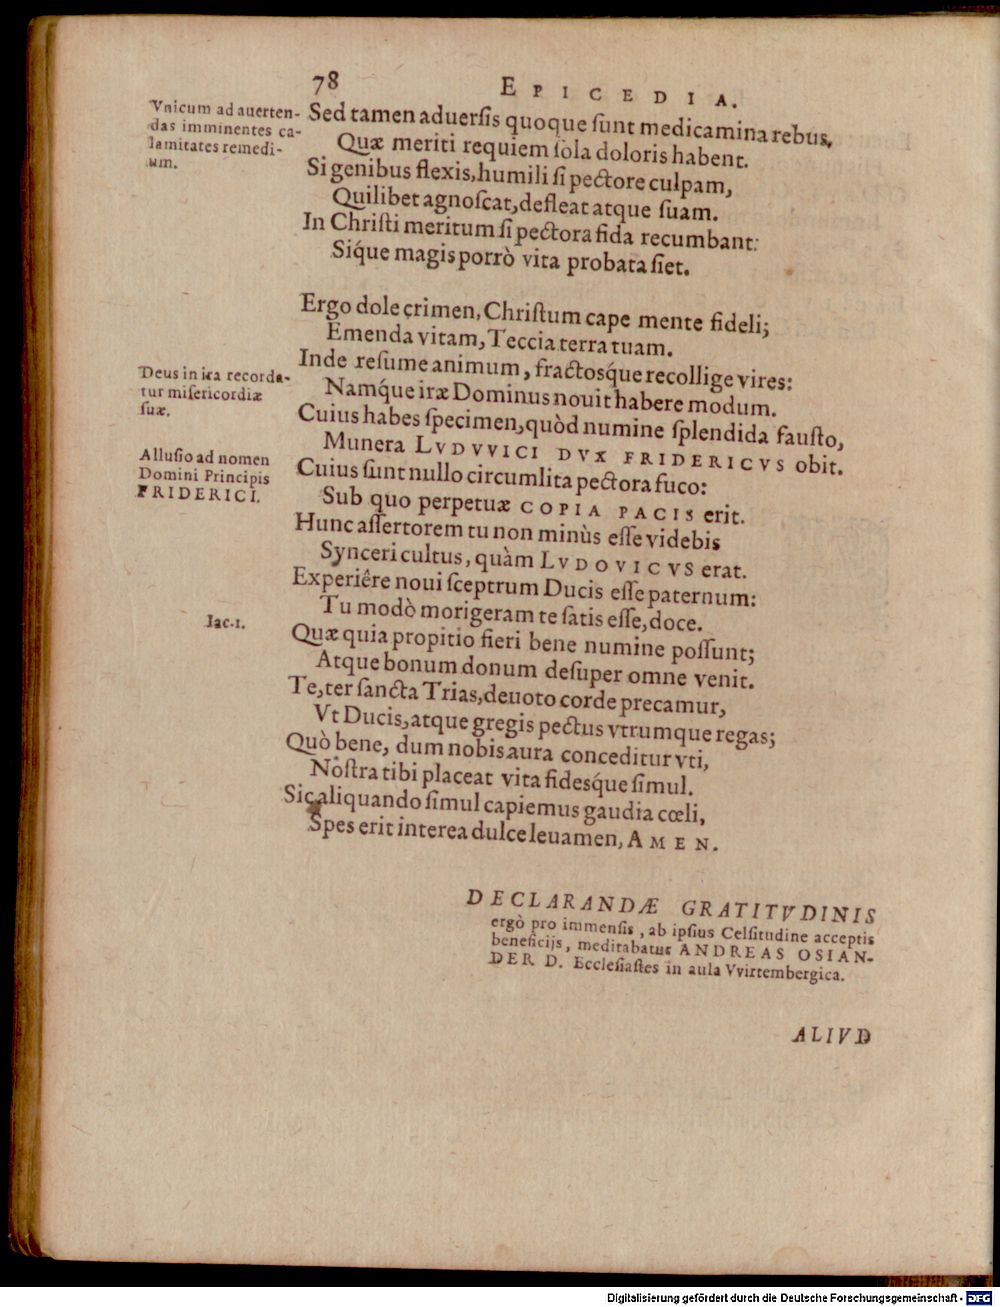 78 EPICEDIA.
Vnicum ad auerten-
das imminentes ca-
lamitates remedi-
um.
Sed tamen aduerſis quoque ſunt medicamina rebus,
Quæ meriti requiem ſola doloris habent.
Si genibus flexis, humili ſi pectore culpam,
Quilibet agnoſcat, defleat atque ſuam.
In Chriſti meritum ſi pectora fida recumbant:
Síque magis porrò vita probata ſiet.
Ergo dole crimen, Chriſtum cape mente fideli;
Emenda vitam, Teccia terra tuam.
Inde reſume animum, fractosq́ue recollige vires:
Deus in ira recorda-
tur miſericordiæ
ſuæ.
Namq́ue iræ Dominus nouit habere modum.
Cuius habes ſpecimen, quòd numine ſplendida fauſto,
Munera LVDVVICI DVX FRIDERICVS obit.
Alluſio ad nomen
Domini Principis
FRIDERICI.
Cuius ſunt nullo circumlita pectora fuco:
Sub quo perpetuæ COPIA PACIS erit.
Hunc aſſertorem tu non minùs eſſe videbis
Synceri cultus, quàm LVDOVICVS erat.
Experiêre noui ſceptrum Ducis eſſe paternum:
Tu modò morigeram te ſatis eſſe, doce.
Iac. 1.
Quæ quia propitio fieri bene numine poſſunt;
Atque bonum donum deſuper omne venit.
Te, ter ſancta Trias, deuoto corde precamur,
Vt Ducis, atque gregis pectus vtrumque regas;
Quò bene, dum nobis aura conceditur vti,
Noſtra tibi placeat vita fidesq́ue ſimul.
Sic aliquando ſimul capiemus gaudia cœli,
Spes erit interea dulce leuamen, AMEN.
DECLARANDÆ GRATITVDINIS
ergò pro immenſis, ab ipſius Celſitudine acceptis
beneficijs, meditabatur ANDREAS OSIAN-
DER D. Eccleſiaſtes in aula VVirtembergica.
ALIVD
Digitalisierung gefördert durch die Deutsche Forschungsgemeinschaft - DFG